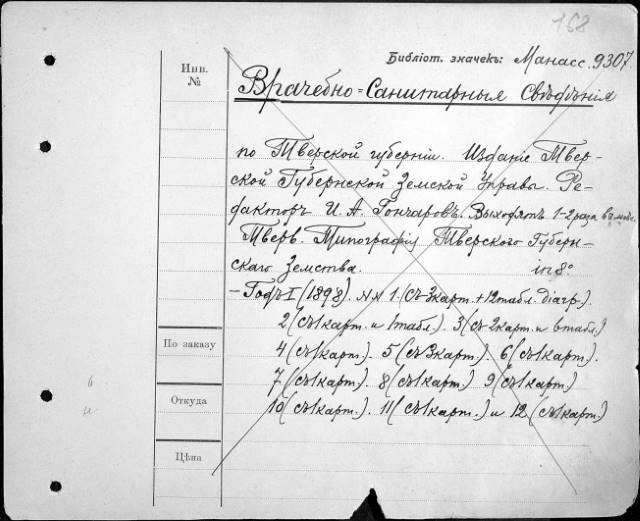 168
Библіот. значекъ: Манасс. 9307
Инв.
№
Врачебно-Санитарныя Свѣдѣнія
по Тверской губерніи. Изданіе Твер-
ской Губернской Земской Управы. Ре-
дакторъ И. А. Гончаровъ. Выходятъ 1-2 раза въ мѣс.
Тверь. Типографія Тверского Губерн-
скаго Земства. in 8°
- Годъ I (1898). №№ 1 (съ 3 карт. + 12 табл. діагр.).
2 (съ 1 карт. и 1 табл.). 3 (съ 2 карт. и 6 табл.)
По заказу
4 (съ 1 карт.). 5 (съ 3 карт.). 6 (съ 1 карт.).
7 (съ 1 карт.). 8 (съ 1 карт.) 9 (съ 1 карт.)
Откуда
10 (съ 1 карт.). 11 (съ 1 карт.) и 12 (съ 1 карт.)
Цѣна